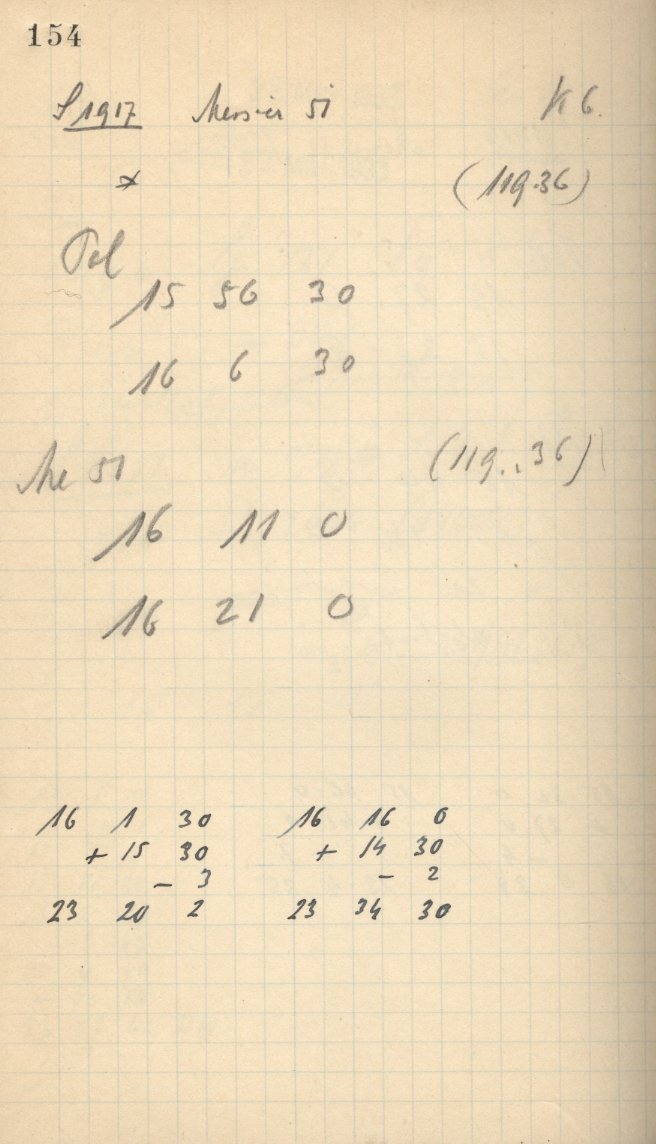 154
S 1917 Messier 51 K 6.
(119.36)
Pol
15 56 30
16 6 30
Me 51 (119..36)
16 11 0
16 21 0
16 1 30 16 16 0
+ 15 30 + 14 30
- 3 - 2
23 20 2 23 34 30